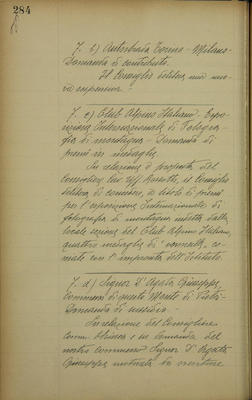 284
7. b) Autostrada Torino - Milano -
Domanda di contributo.
Il Consiglio delibera
7. c) Club Alpino Italiano - Espo-
sizione Internazionale di Fotogra-
fia di montagna - Domanda di
premi in medaglie.
In relazione a proposta del
Consigliere il Consiglio
delibera di concedere, a titolo di premi
per l'esposizione Internazionale di
fotografia di montagna indetta dalla
locale sezione del Club Alpino Italiano,
quattro medaglie di vermeille, co-
niate con l'impronta dell'Istituto.
7. d) Signor D'Agata Giuseppe,
commesso di questo Monte di Pietà -
Domanda di sussidio.
In relazione del Consigliere
Comm. e su domanda del
nostro commesso Signor D'Agata
Giuseppe, motivata